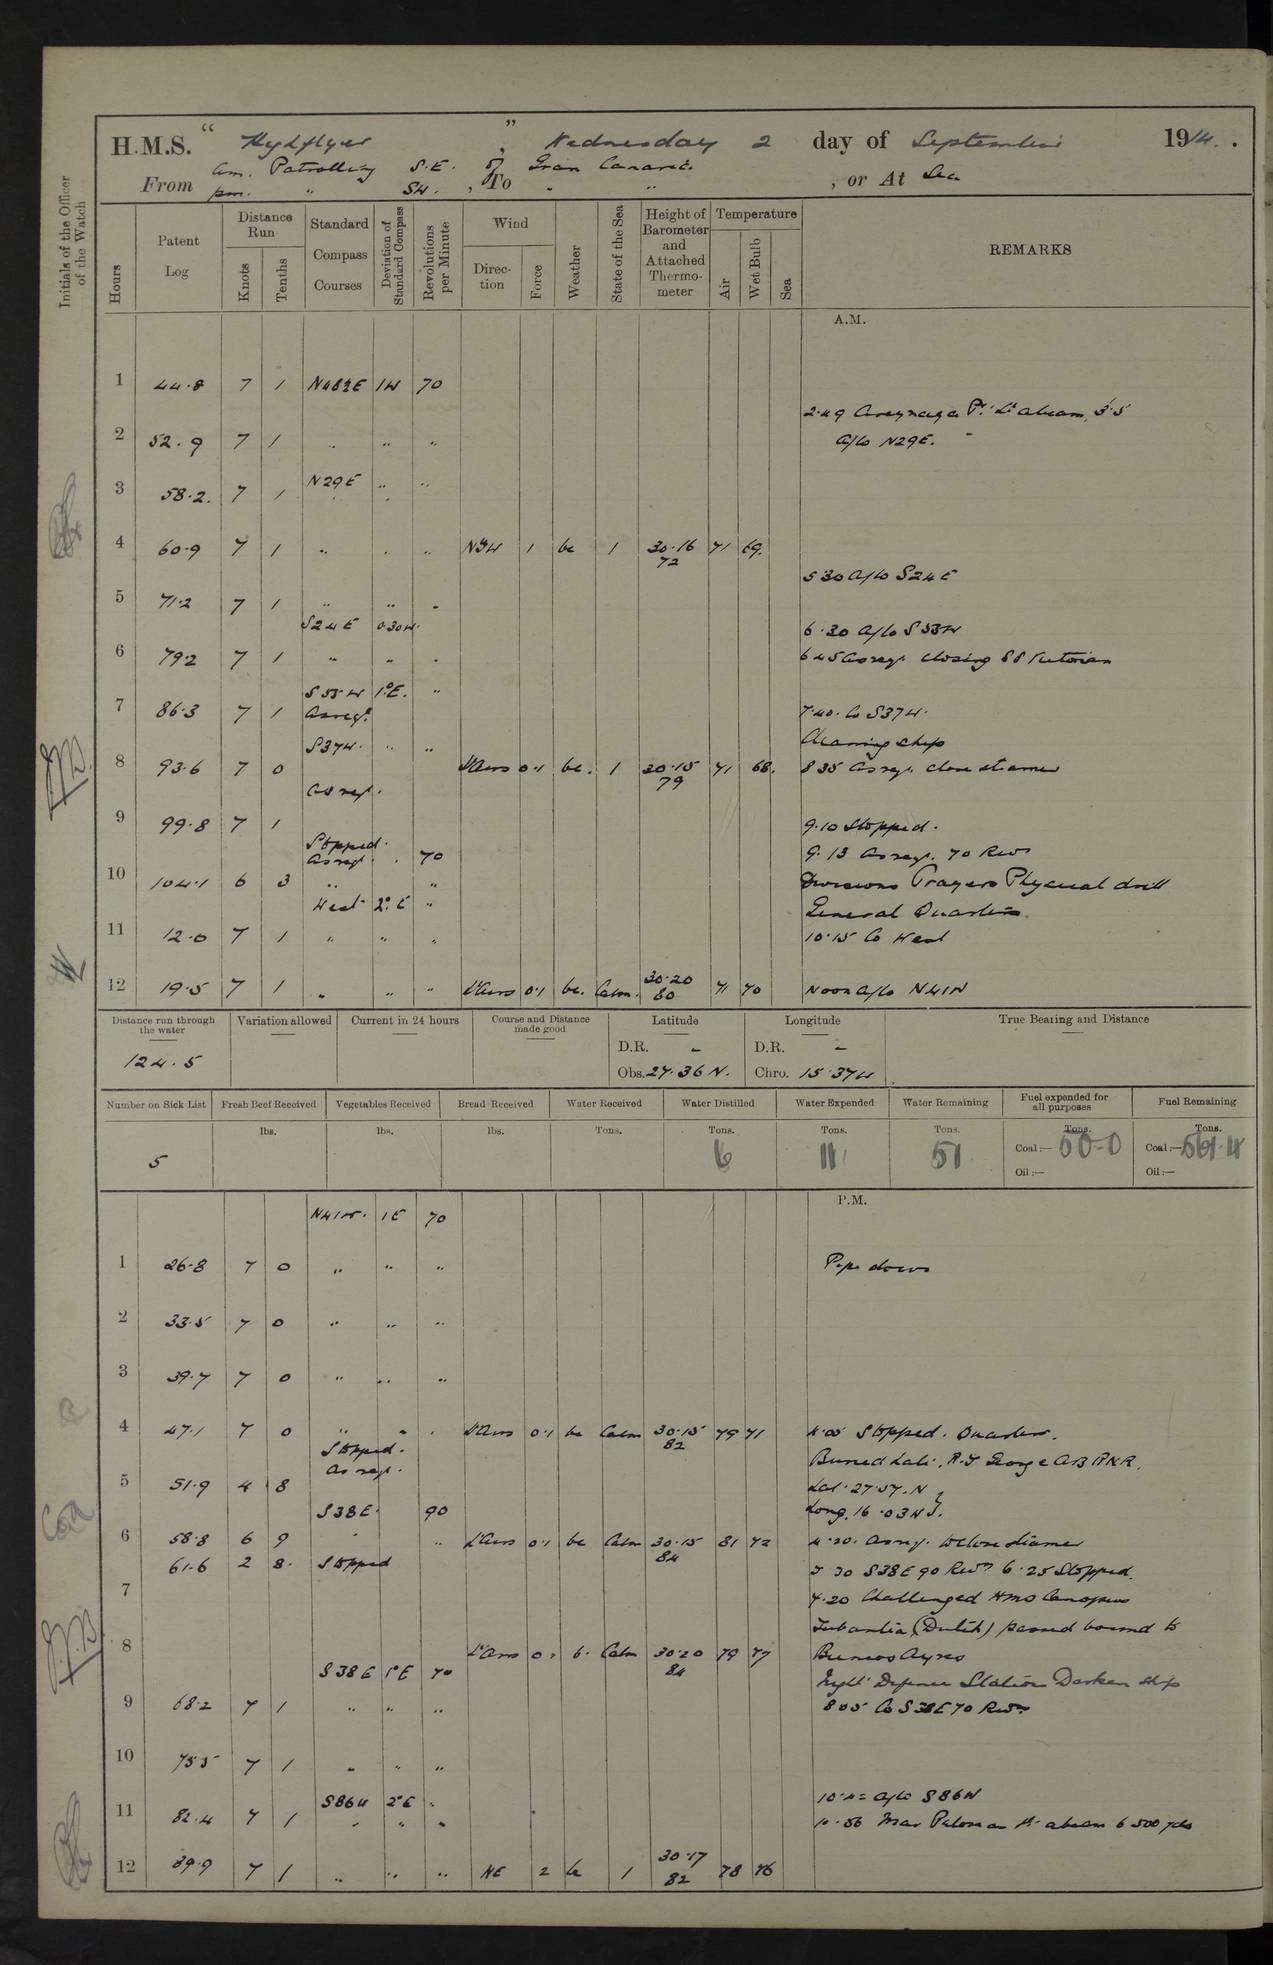 H.M.S. " Highflyer ", Wednesday 2 day of September 1914.
From am. Patrolling S.E. of Gran Canaria.
pm. " SW. , To " " , or At Sea
Initials of the Officer of the Watch
Hours
Patent Log
Distance Run
Knots
Tenths
Standard Compass Courses
Deviation of Standard Compass
Revolutions per Minute
Wind
Direction
Force
Weather
State of the Sea
Height of Barometer and Attached Thermometer
Temperature
Air
Wet Bulb
Sea
REMARKS
A.M.
1 44.8 7 1 1W 70
2.49 Pt. Lt abeam, 3'.5
2 52.9 7 1 " " " A/co N29E.
N29E " "
3 58.2. 7 1
4 60.9 7 1 " " " NbW 1 bc 1 30.16 71 69.
72
5 30 A/co S24E
5 71.2 7 1 " " "
S24E 0.30W.
6.30 A/co S53W
6 79.2 7 1 " " " 6 45 As reqt. closing SS
S53W 1°E. "
7 86.3 7 1 As reqt. 7.40. Co S37W.
S37W. " " Cleaning ship
8 93.6 7 0 Lt Airs 0.1 bc. 1 30.15 71 68. 8 35 As reqt. close steamer
79
As reqt.
9 99.8 7 1 9.10 Stopped.
Stopped.
As reqt. " 70 9.13 As reqt. 70 Revs
10 104.1 6 3 " " Divisions Prayers Physical drill
West 2°E " General Quarters.
11 12.0 7 1 " " " 10.15 Co West
12 19.5 7 1 " " " Lt Airs 0.1 bc. Calm. 30.20 71 70 Noon A/co N41W
80
Distance run through the water
Variation allowed
Current in 24 hours
Course and Distance made good
Latitude
Longitude
True Bearing and Distance
124.5
D.R. - D.R. -
Obs. 27.36 N. Chro. 15.37W
Number on Sick List
Fresh Beef Received
Vegetables Received
Bread Received
Water Received
Water Distilled
Water Expended
Water Remaining
Fuel expended for all purposes
Fuel Remaining
lbs. lbs. lbs. Tons. Tons. Tons. Tons. Tons. Tons.
5 6 11 51 Coal:— 50-0 Coal:— 561.4
Oil:— Oil:—
P.M.
N41W. 1E 70
1 26.8 7 0 " " " Pipe down
2 33.5 7 0 " " "
3 39.7 7 0 " " "
4 47.1 7 0 " " " Lt Airs 0.1 bc Calm 30.15 79 71 4.00 Stopped. Quarters.
82
Stopped.
As reqt. Buried Late. R.J George AB RNR.
5 51.9 4 8 Lat. 27.57.N
S38E. 90 Long. 16.03W
6 58.8 6 9 " Lt Airs 0.1 bc Calm 30.15 81 72 4.20. As reqt. to close steamer
84
61.6 2 8. Stopped 5 30 S38E 90 Revs 6.25 Stopped.
7 7.20 Challenged HMS Canopus
Tubantia (Dutch) passed bound to
8 Lt Airs 0.1 b. Calm 30.20 79 77 Buenos Ayres
84
S38E 1°E 70 Night Defence Stations Darken ship
9 68.2 7 1 " " " 8 05 Co S38E 70 Revs
10 75.5 7 1 " " "
S86W 2°E " A/co S86W
11 82.4 7 1 " " " 10.56 Lt. abeam 6500 yds
12 89.9 7 1 " " " NE 2 bc 1 30.17 78 76
82